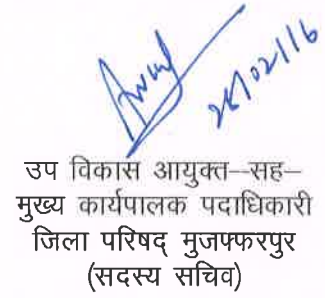 26/02/16
उप विकास आयुक्त–सह–
मुख्य कार्यपालक पदाधिकारी
जिला परिषद् मुजफ्फरपुर
(सदस्य सचिव)